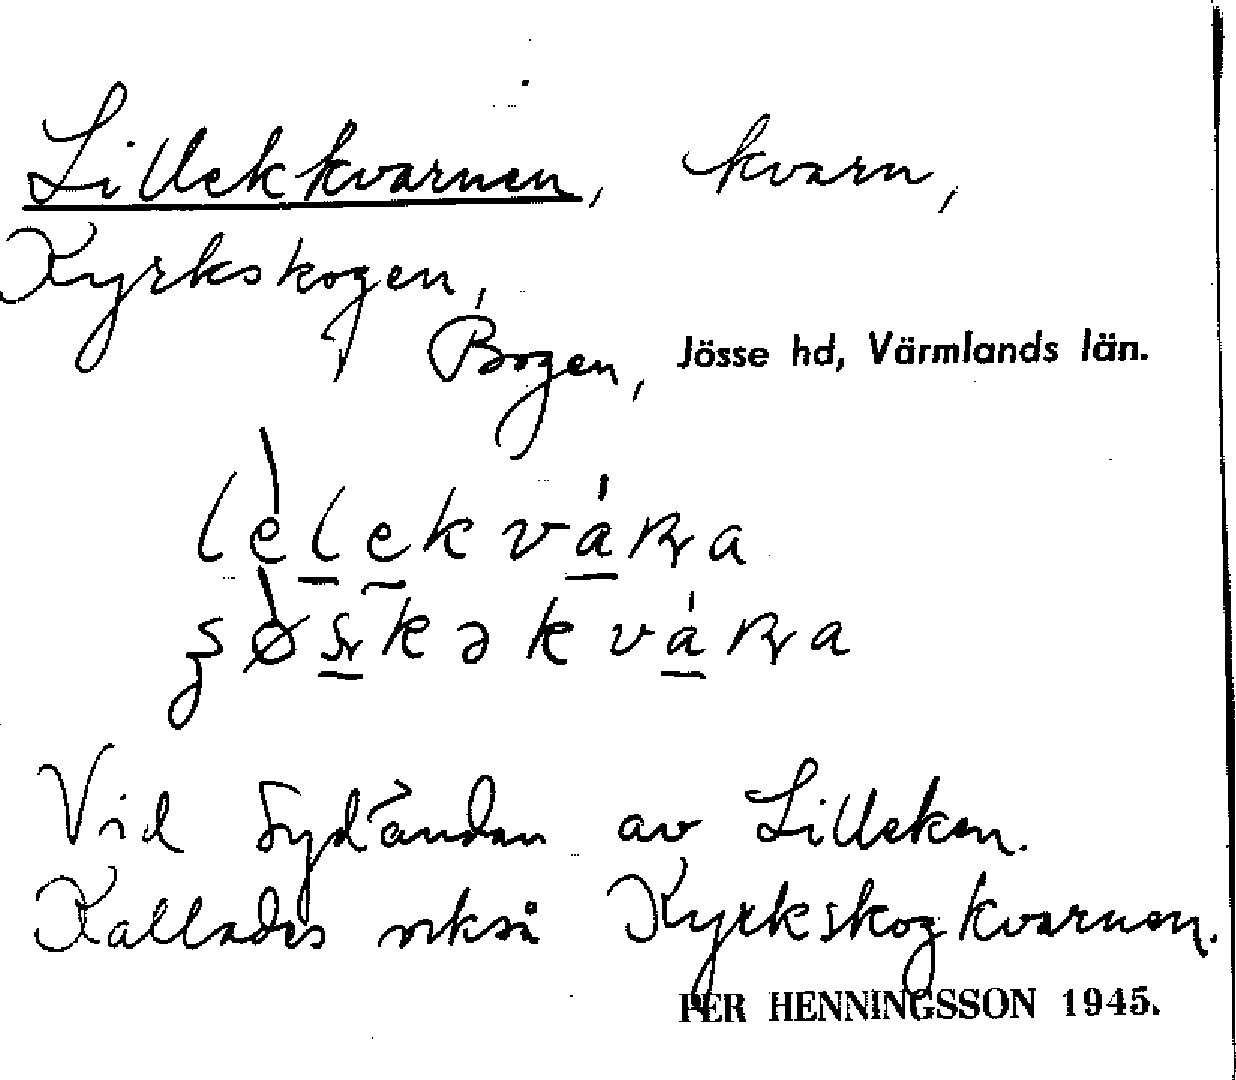 Lillekkvarnen, kvarn,
Kyrkskogen,
Bogen, Jösse hd, Värmlands län.
Vid Sydändan av Lilleken.
Kallades också Kyrkskogkvarnen.
PER HENNINGSSON 1945.